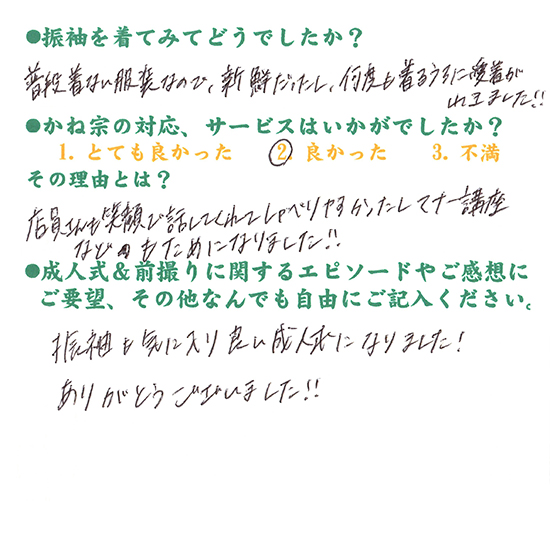 ●振袖を着てみてどうでしたか？
普段着ない服装なので、新鮮だったし、何度も着るうちに愛着が
れてきました!!
●かね宗の対応、サービスはいかがでしたか？
1. とても良かった 2. 良かった 3. 不満
その理由とは？
店員さんも笑顔で話してくれてしゃべりやすかったしマナー講座
などのもためになりました!!
●成人式＆前撮りに関するエピソードやご感想に
ご要望、その他なんでも自由にご記入ください。
振袖も気に入り良い成人式になりました！
ありがとうございました!!